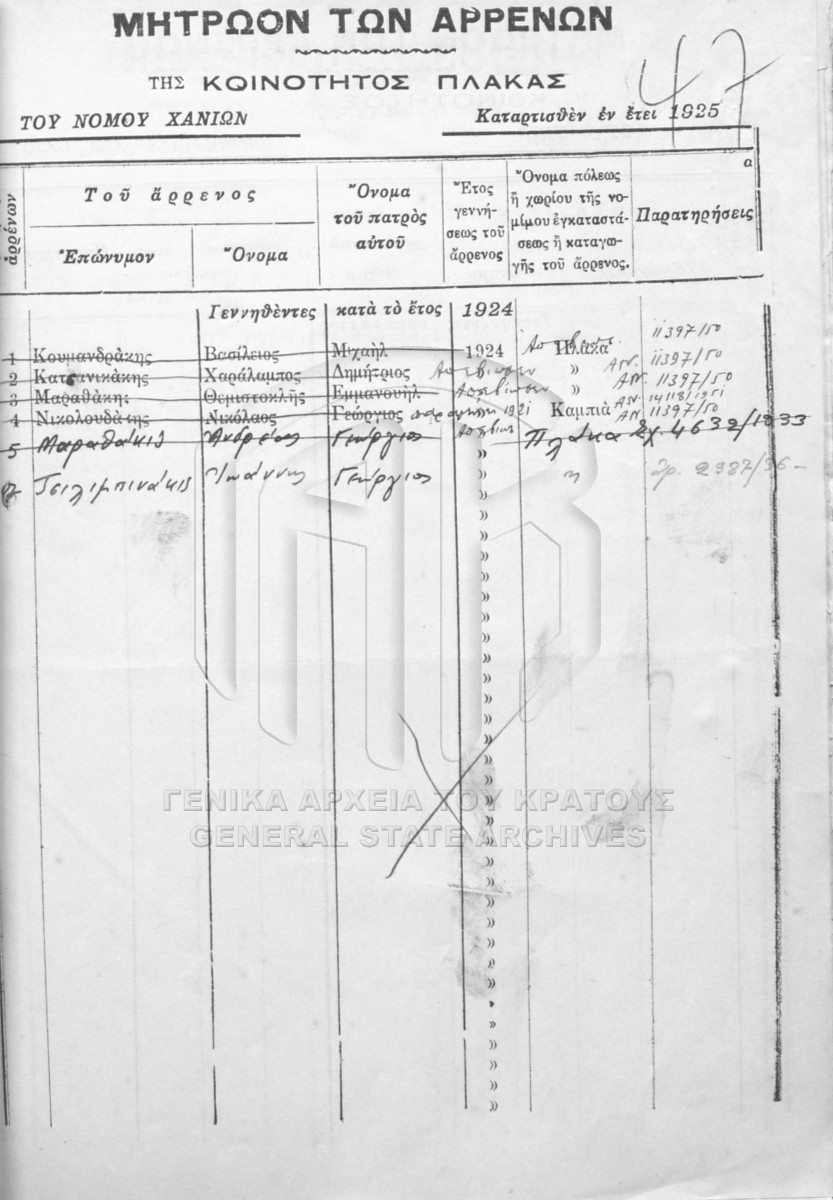 ΜΗΤΡΩΟΝ ΤΩΝ ΑΡΡΕΝΩΝ
47
ΤΗΣ ΚΟΙΝΟΤΗΤΟΣ ΠΛΑΚΑΣ
ΤΟΥ ΝΟΜΟΥ ΧΑΝΙΩΝ
Καταρτισθὲν ἐν ἔτει 1925
α
ἀρρένων
Τοῦ ἄρρενος
Ἐπώνυμον
Ὄνομα
Ὄνομα τοῦ πατρὸς αὐτοῦ
Ἔτος γεννήσεως τοῦ ἄρρενος
Ὄνομα πόλεως ἢ χωρίου τῆς νομίμου ἐγκαταστάσεως ἢ καταγωγῆς τοῦ ἄρρενος.
Παρατηρήσεις
Γεννηθέντες κατὰ τὸ ἔτος 1924
1 Κουμανδράκης Βασίλειος Μιχαὴλ 1924 Πλάκα 11397/50
2 Κατσανικάκης Χαράλαμπος Δημήτριος » ΑΝ. 11397/50
3 Μαραθάκης Θεμιστοκλῆς Ἐμμανουὴλ » ΑΝ. 11397/50
4 Νικολουδάκης Νικόλαος Γεώργιος 1921 Καμπιὰ ΑΝ. 14118/1951 ΑΝ. 11397/50
5 Μαραθάκις Ἀνδρέας Γεώργιος » Πλάκα 4632/1933
Τσιλιμπινάκις Ἰωάννης Γεώργιος » 2387/36
ΓΕΝΙΚΑ ΑΡΧΕΙΑ ΤΟΥ ΚΡΑΤΟΥΣ
GENERAL STATE ARCHIVES